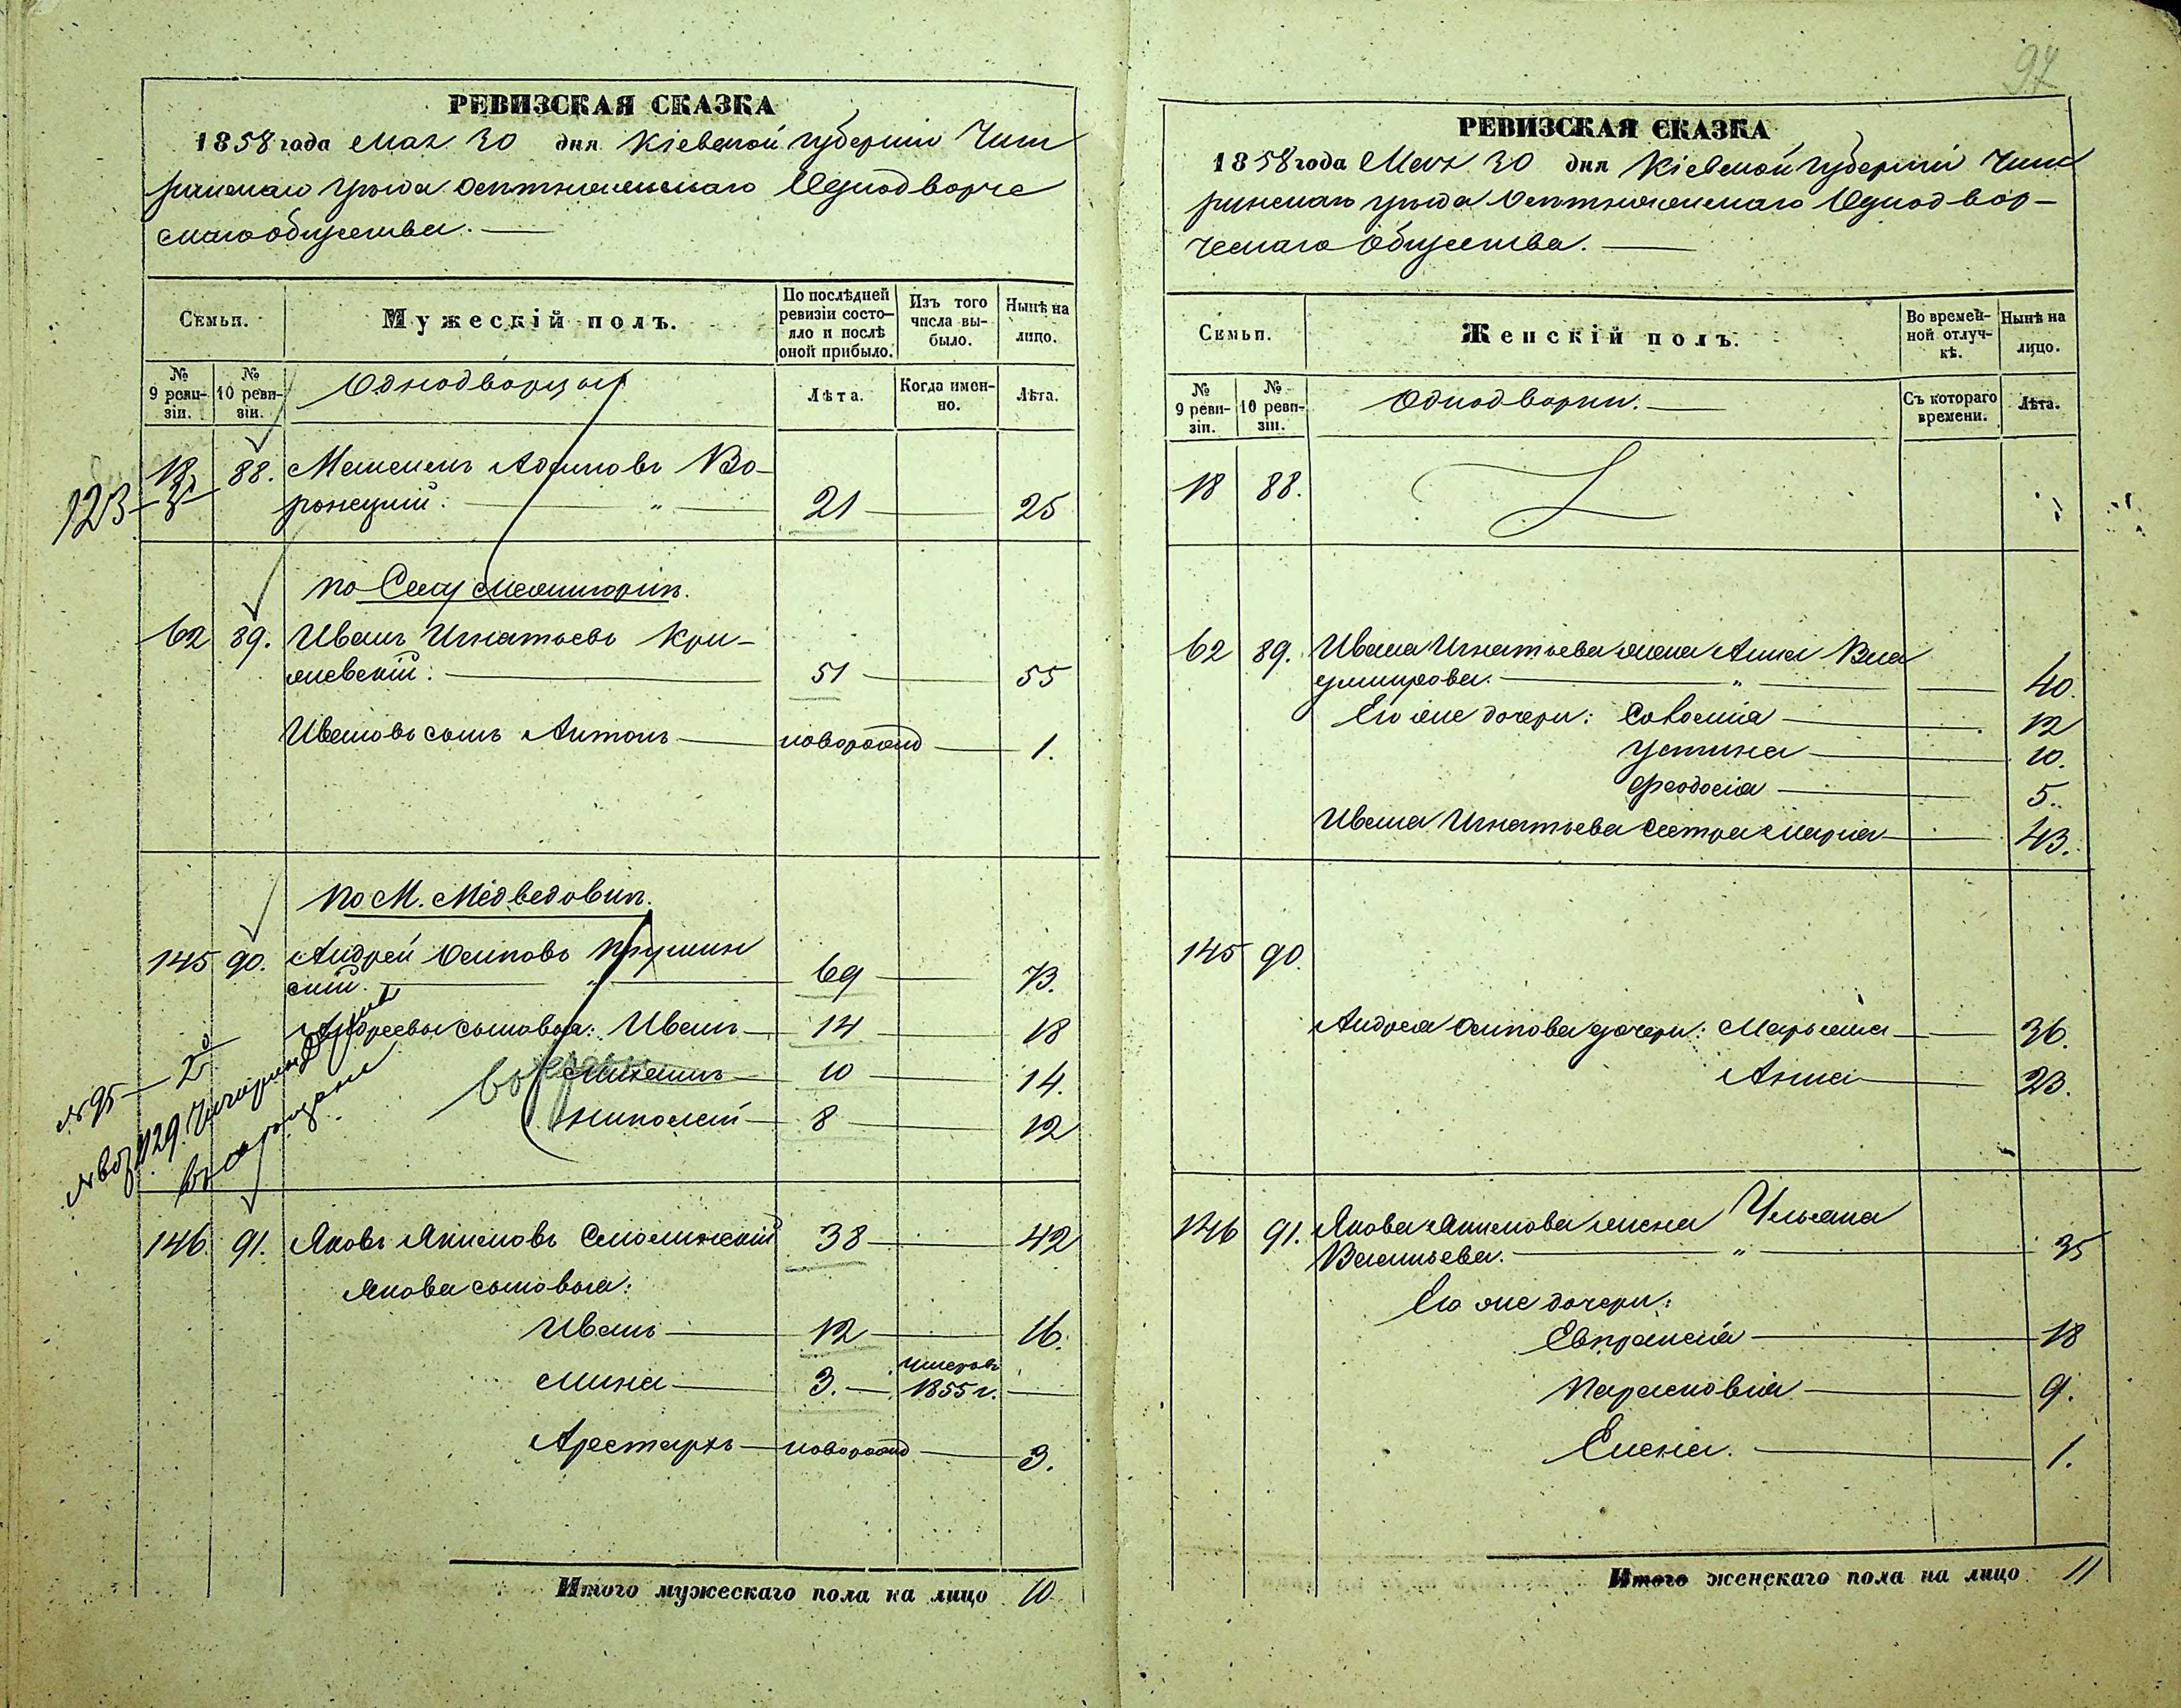 94
РЕВИЗСКАЯ СКАЗКА
1858 года Мая 30 дня Кіевской Губерніи Чиги
ринскаго уѣзда Однодворче
скаго общества.
Семьи.
Мужескій полъ.
По послѣдней ревизіи состояло и послѣ оной прибыло.
Изъ того числа выбыло.
Нынѣ на лицо.
№ 9 ревизіи.
№ 10 ревизіи.
Однодворцы
Лѣта.
Когда именно.
Лѣта.
123
18 88. Адамовъ Во-
ронецкій. 21 25
По Селу
62 89. Иванъ Игнатьевъ Кри-
жевскій. 51 55
Ивановъ сынъ Антонъ новорожд 1.
По М. Медведовкѣ.
145 90. Андрей Осиповъ
скій. 69 73.
Андреевы сыновья: Иванъ 14 18
10 14.
Николай 8 12
№ 95
146 91. Яковъ Якимовъ Смолинскій 38 42
Якова сыновья:
Иванъ 12 16.
умеръ
Мина 3. 1855 г.
Арестархъ новорожд 3.
Итого мужескаго пола на лицо 10
РЕВИЗСКАЯ СКАЗКА
1858 года Мая 30 дня Кіевской Губерніи Чиги
ринскаго уѣзда Однодвор-
ческаго Общества.
Семьи.
Женскій полъ.
Во временной отлучкѣ.
Нынѣ на лицо.
№ 9 ревизіи.
№ 10 ревизіи.
Однодворки.
Съ котораго времени.
Лѣта.
18 88.
62 89. Ивана Игнатьева жена Анна Вла
димирова. 40.
Его же дочери: Соломія 12
Устина 10.
Феодосія 5.
Ивана Игнатьева сестра Марія 43.
145 90.
Андрея Осипова дочери: Марьяна 36.
Анна 23.
146 91. Якова Якимова жена Ульяна
Васильева. 35
Его же дочери:
Евпраксія 18
Парасковія 9.
Елена. 1.
Итого женскаго пола на лицо 11